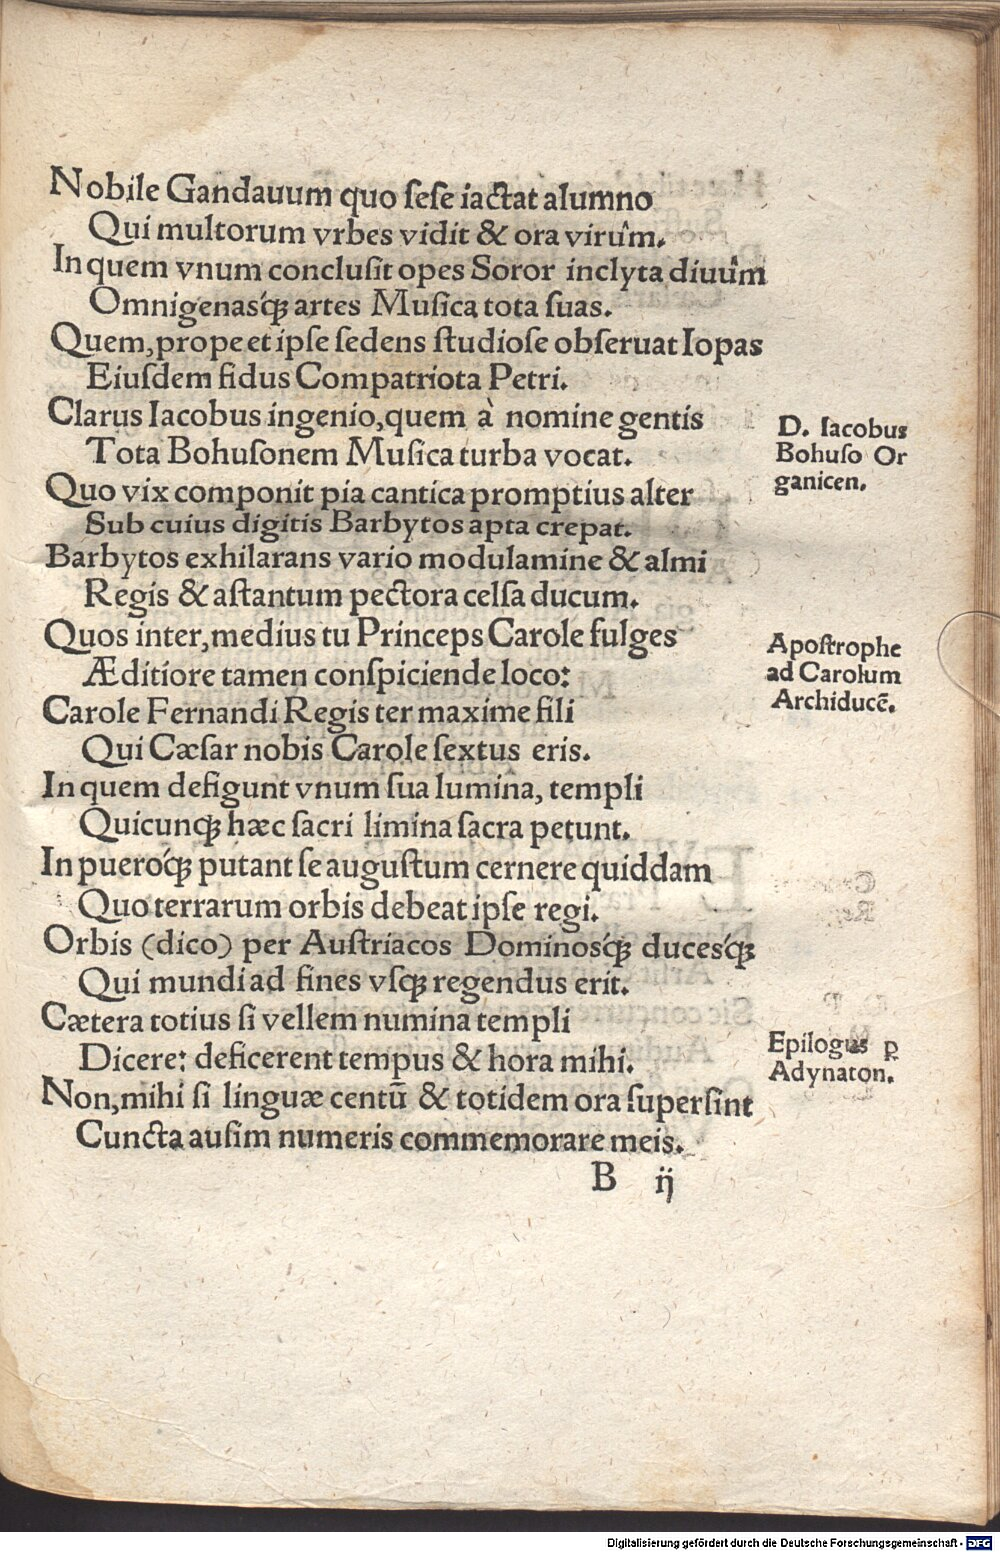 Nobile Gandauum quo ſeſe iactat alumno
Qui multorum vrbes vidit & ora virûm.
In quem vnum concluſit opes Soror inclyta diuûm
Omnigenasq́ꝫ artes Muſica tota ſuas.
Quem, prope et ipſe ſedens ſtudioſe obſeruat Iopas
Eiuſdem fidus Compatriota Petri.
Clarus Iacobus ingenio, quem à nomine gentis
Tota Bohuſonem Muſica turba vocat.
D. Iacobus
Bohuſo Or
ganicen.
Quo vix componit pia cantica promptius alter
Sub cuius digitis Barbytos apta crepat.
Barbytos exhilarans vario modulamine & almi
Regis & aſtantum pectora celſa ducum.
Quos inter, medius tu Princeps Carole fulges
Æditiore tamen conſpiciende loco:
Apoſtrophe
ad Carolum
Archiducē.
Carole Fernandi Regis ter maxime fili
Qui Cæſar nobis Carole ſextus eris.
In quem defigunt vnum ſua lumina, templi
Quicunqꝫ hæc ſacri limina ſacra petunt.
In pueroq́ꝫ putant ſe auguſtum cernere quiddam
Quo terrarum orbis debeat ipſe regi.
Orbis (dico) per Auſtriacos Dominosq́ꝫ ducesq́ꝫ
Qui mundi ad fines vſqꝫ regendus erit.
Cætera totius ſi vellem numina templi
Dicere: deficerent tempus & hora mihi.
Epilogus ꝑ
Adynaton.
Non, mihi ſi linguæ centū & totidem ora ſuperſint
Cuncta auſim numeris commemorare meis.
B ij
Digitalisierung gefördert durch die Deutsche Forschungsgemeinschaft - DFG